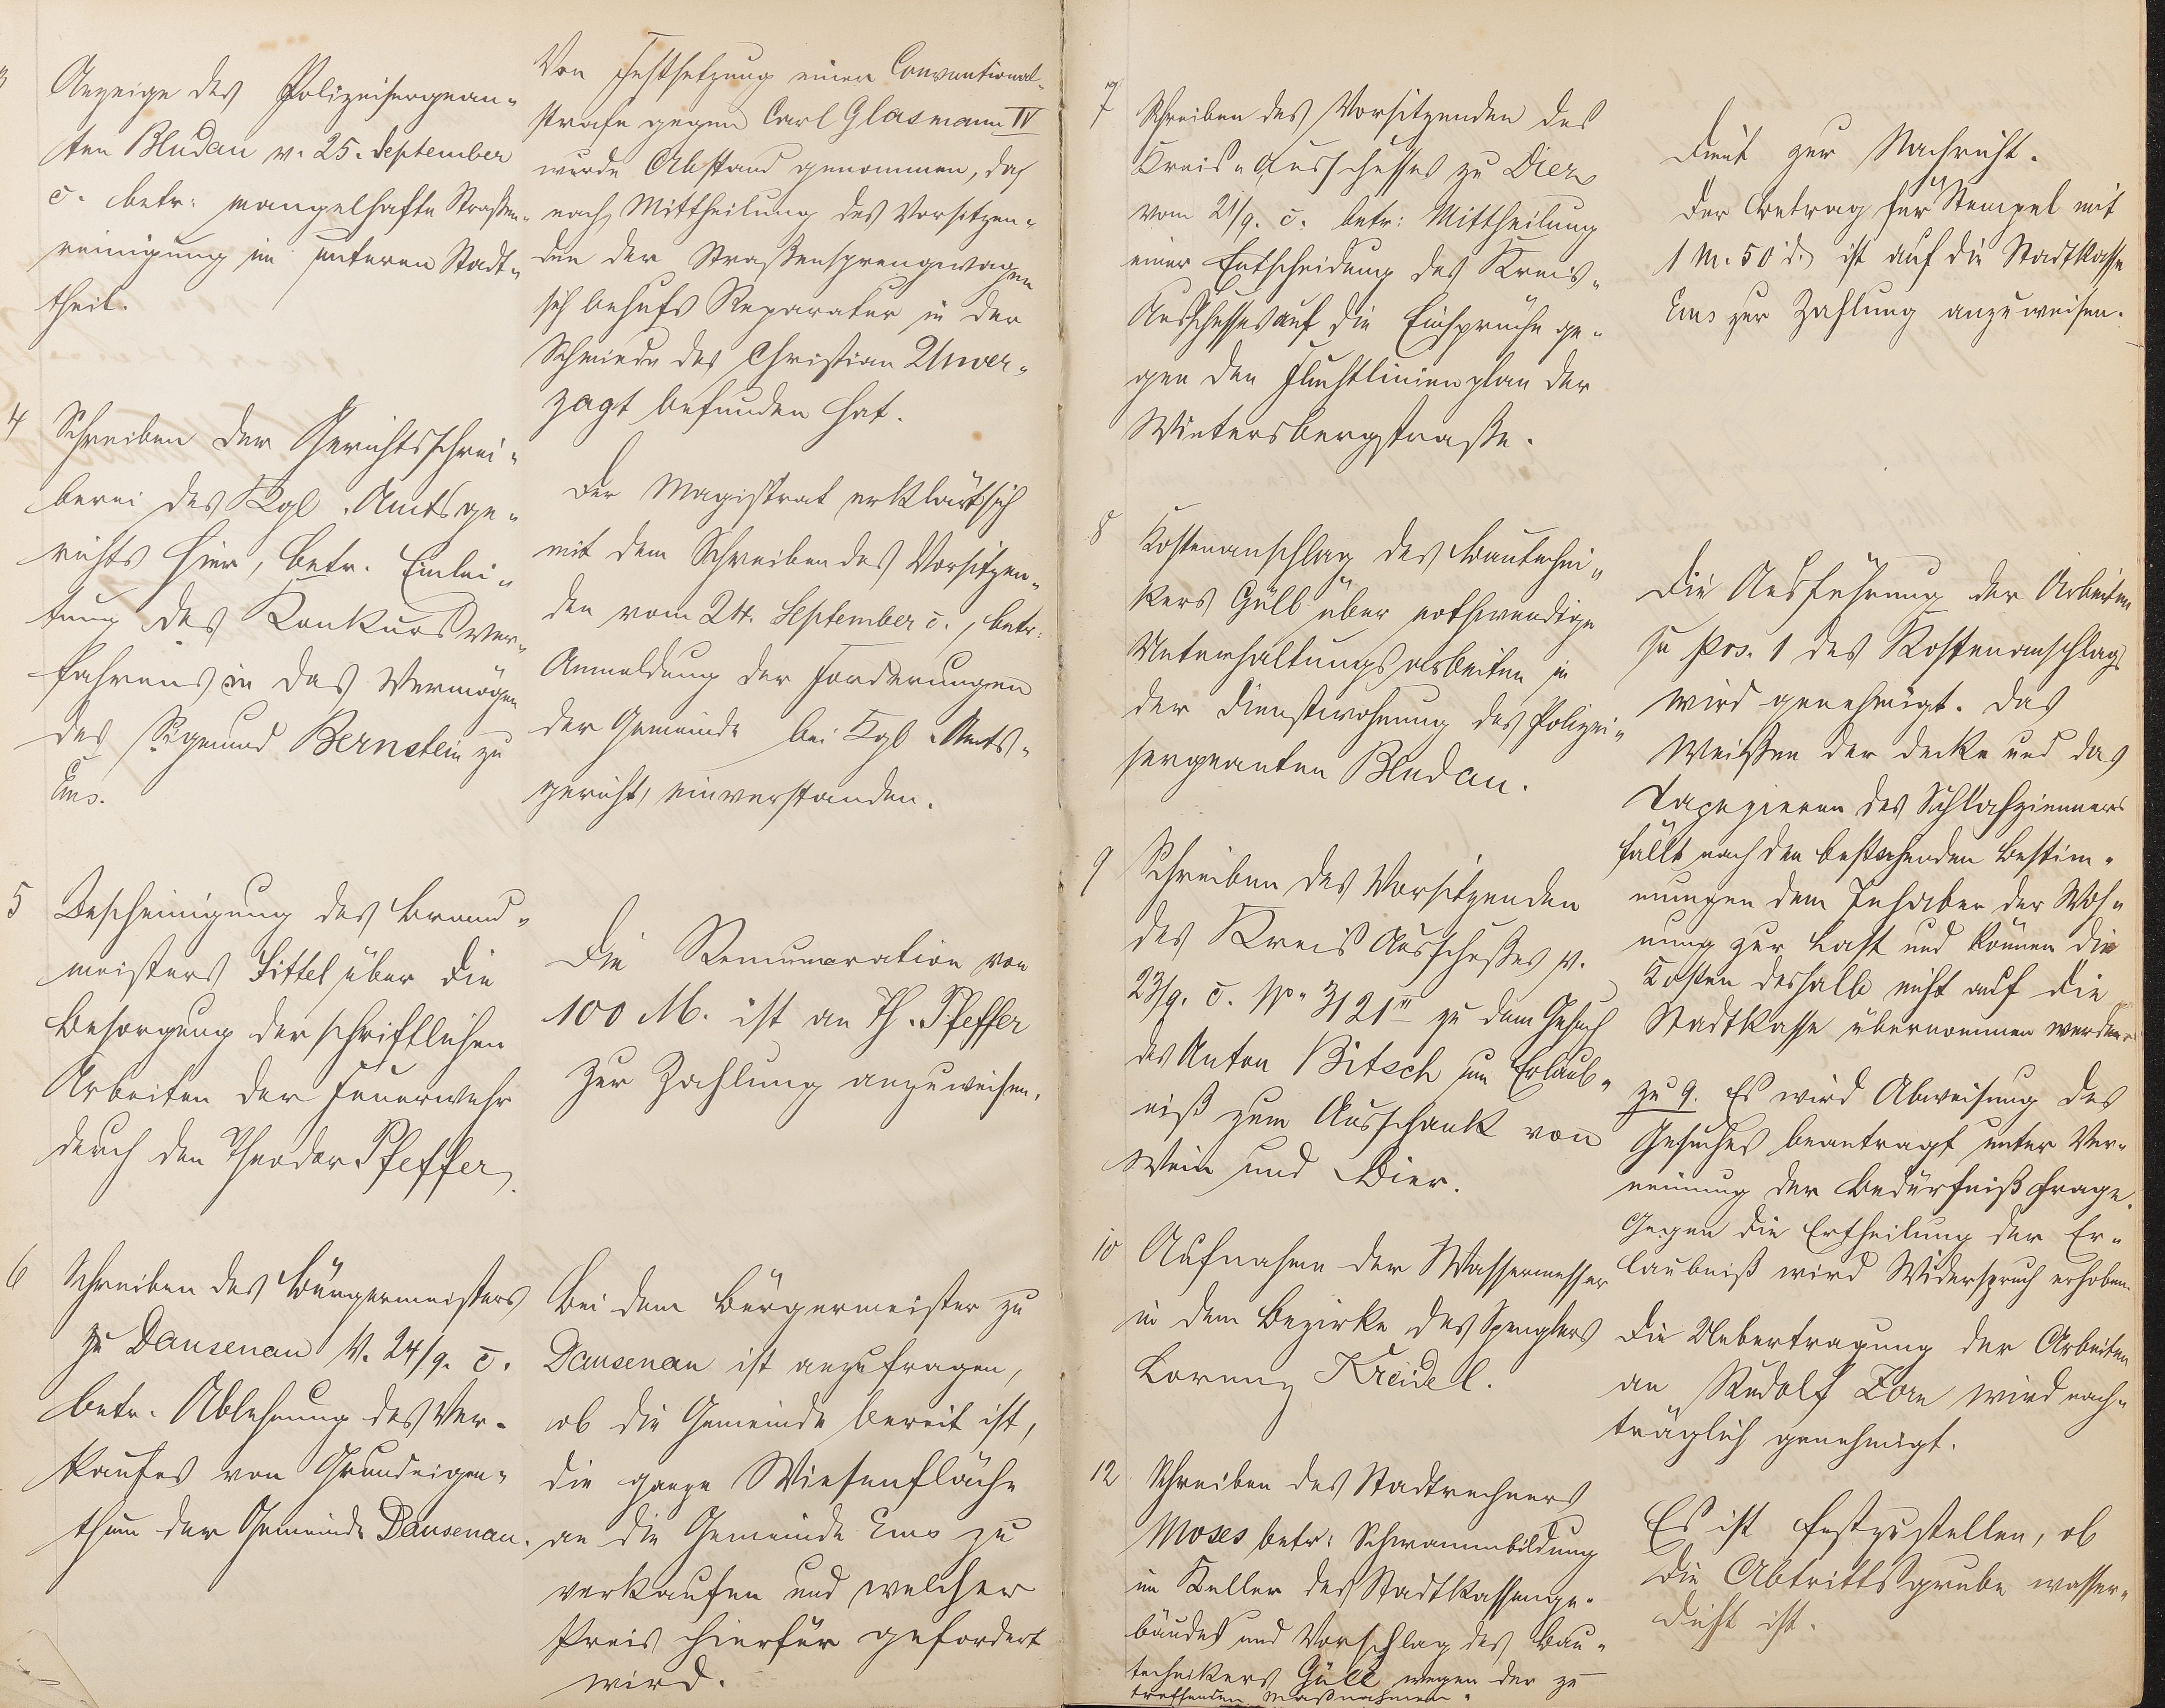 3
Anzeige des Polizeisergean-
ten Bludau v. 25. September
c. betr. mangelhafte Straßen-
reinigung im unteren Stadt-
theil.
Von Festsetzung einer Conventional-
strafe gegen Carl Glasmann IV
wurde Abstand genommen, da
nach Mittheilung des Vorsitzen-
den der Straßensprengwagen
sich behufs Reparatur in der
Schmiede des Christian Unver-
zagt befunden hat.
4
Schreiben der Gerichtsschrei-
berei des Kgl. Amtsge-
richts hier, betr. Einlei-
tung des Konkursver-
fahrens in das Vermögen
des Sigmund Bernstein zu
Ems.
Der Magistrat erklärt sich
mit dem Schreiben des Vorsitzen-
den vom 24. September c., betr.
Anmeldung der Forderungen
der Gemeinde bei Kgl. Amts-
gericht, einverstanden.
5
Bescheinigung des Brand-
meisters Sittel über die
Besorgung der schriftlichen
Arbeiten der Feuerwehr
durch den Theodor Pfeffer.
Die Remuneration von
100 M. ist an Th. Pfeffer
zur Zahlung anzuweisen.
6
Schreiben des Bürgermeisters
zu Dausenau v. 24/9. c.
betr. Ablehnung des Ver-
kaufes von Grundeigen-
thum der Gemeinde Dausenau.
Bei dem Bürgermeister zu
Dausenau ist anzufragen,
ob die Gemeinde bereit ist,
die ganze Wiesenfläche
an die Gemeinde Ems zu
verkaufen und welcher
Preis hierfür gefordert
wird.
7
Schreiben des Vorsitzenden des
Kreis-Ausschusses zu Diez
vom 21/9. c. betr: Mittheilung
einer Entscheidung des Kreis-
Ausschusses auf die Einsprüche ge-
gen den Fluchtlinienplan der
Wintersbergstraße.
Dient zur Nachricht.
Der Betrag für Stempel mit
1 M. 50 d. ist auf die Stadtkasse
Ems zur Zahlung anzuweisen.
8
Kostenanschlag des Bautechni-
kers Güll über nothwendige
Unterhaltungsarbeiten in
der Dienstwohnung des Polizei-
sergeanten Bludau.
Die Ausführung der Arbeiten
zu Pos. 1 des Kostenanschlags
wird genehmigt. Das
Weißen der Decke und das
Tapezieren des Schlafzimmers
fällt nach den bestehenden Bestim-
mungen dem Inhaber der Woh-
nung zur Last und können die
Kosten deshalb nicht auf die
Stadtkasse übernommen werden.
9
Schreiben des Vorsitzenden
des Kreis Ausschußes v.
23/9. c. 3121 zu dem Gesuch
des Anton Bitsch um Erlaub-
niß zum Ausschank von
Wein und Bier.
zu 9. Es wird Abweisung des
Gesuches beantragt unter Ver-
neinung der Bedürfnißfrage.
Gegen die Ertheilung der Er-
laubniß wird Widerspruch erhoben.
10
Aufnahme der Wassermesser
in dem Bezirke des Spenglers
Lorenz Kreidel.
Die Uebertragung der Arbeiten
an Rudolf Zorn wird nach-
träglich genehmigt.
12
Schreiben des Stadtrechners
Moses betr: Schwammbildung
im Keller des Stadtkassenge-
bäudes und Vorschlag des Bau-
technikers Güll wegen der zu
treffenden Maßnahmen.
Es ist festzustellen, ob
die Abtrittsgrube wasser-
dicht ist.